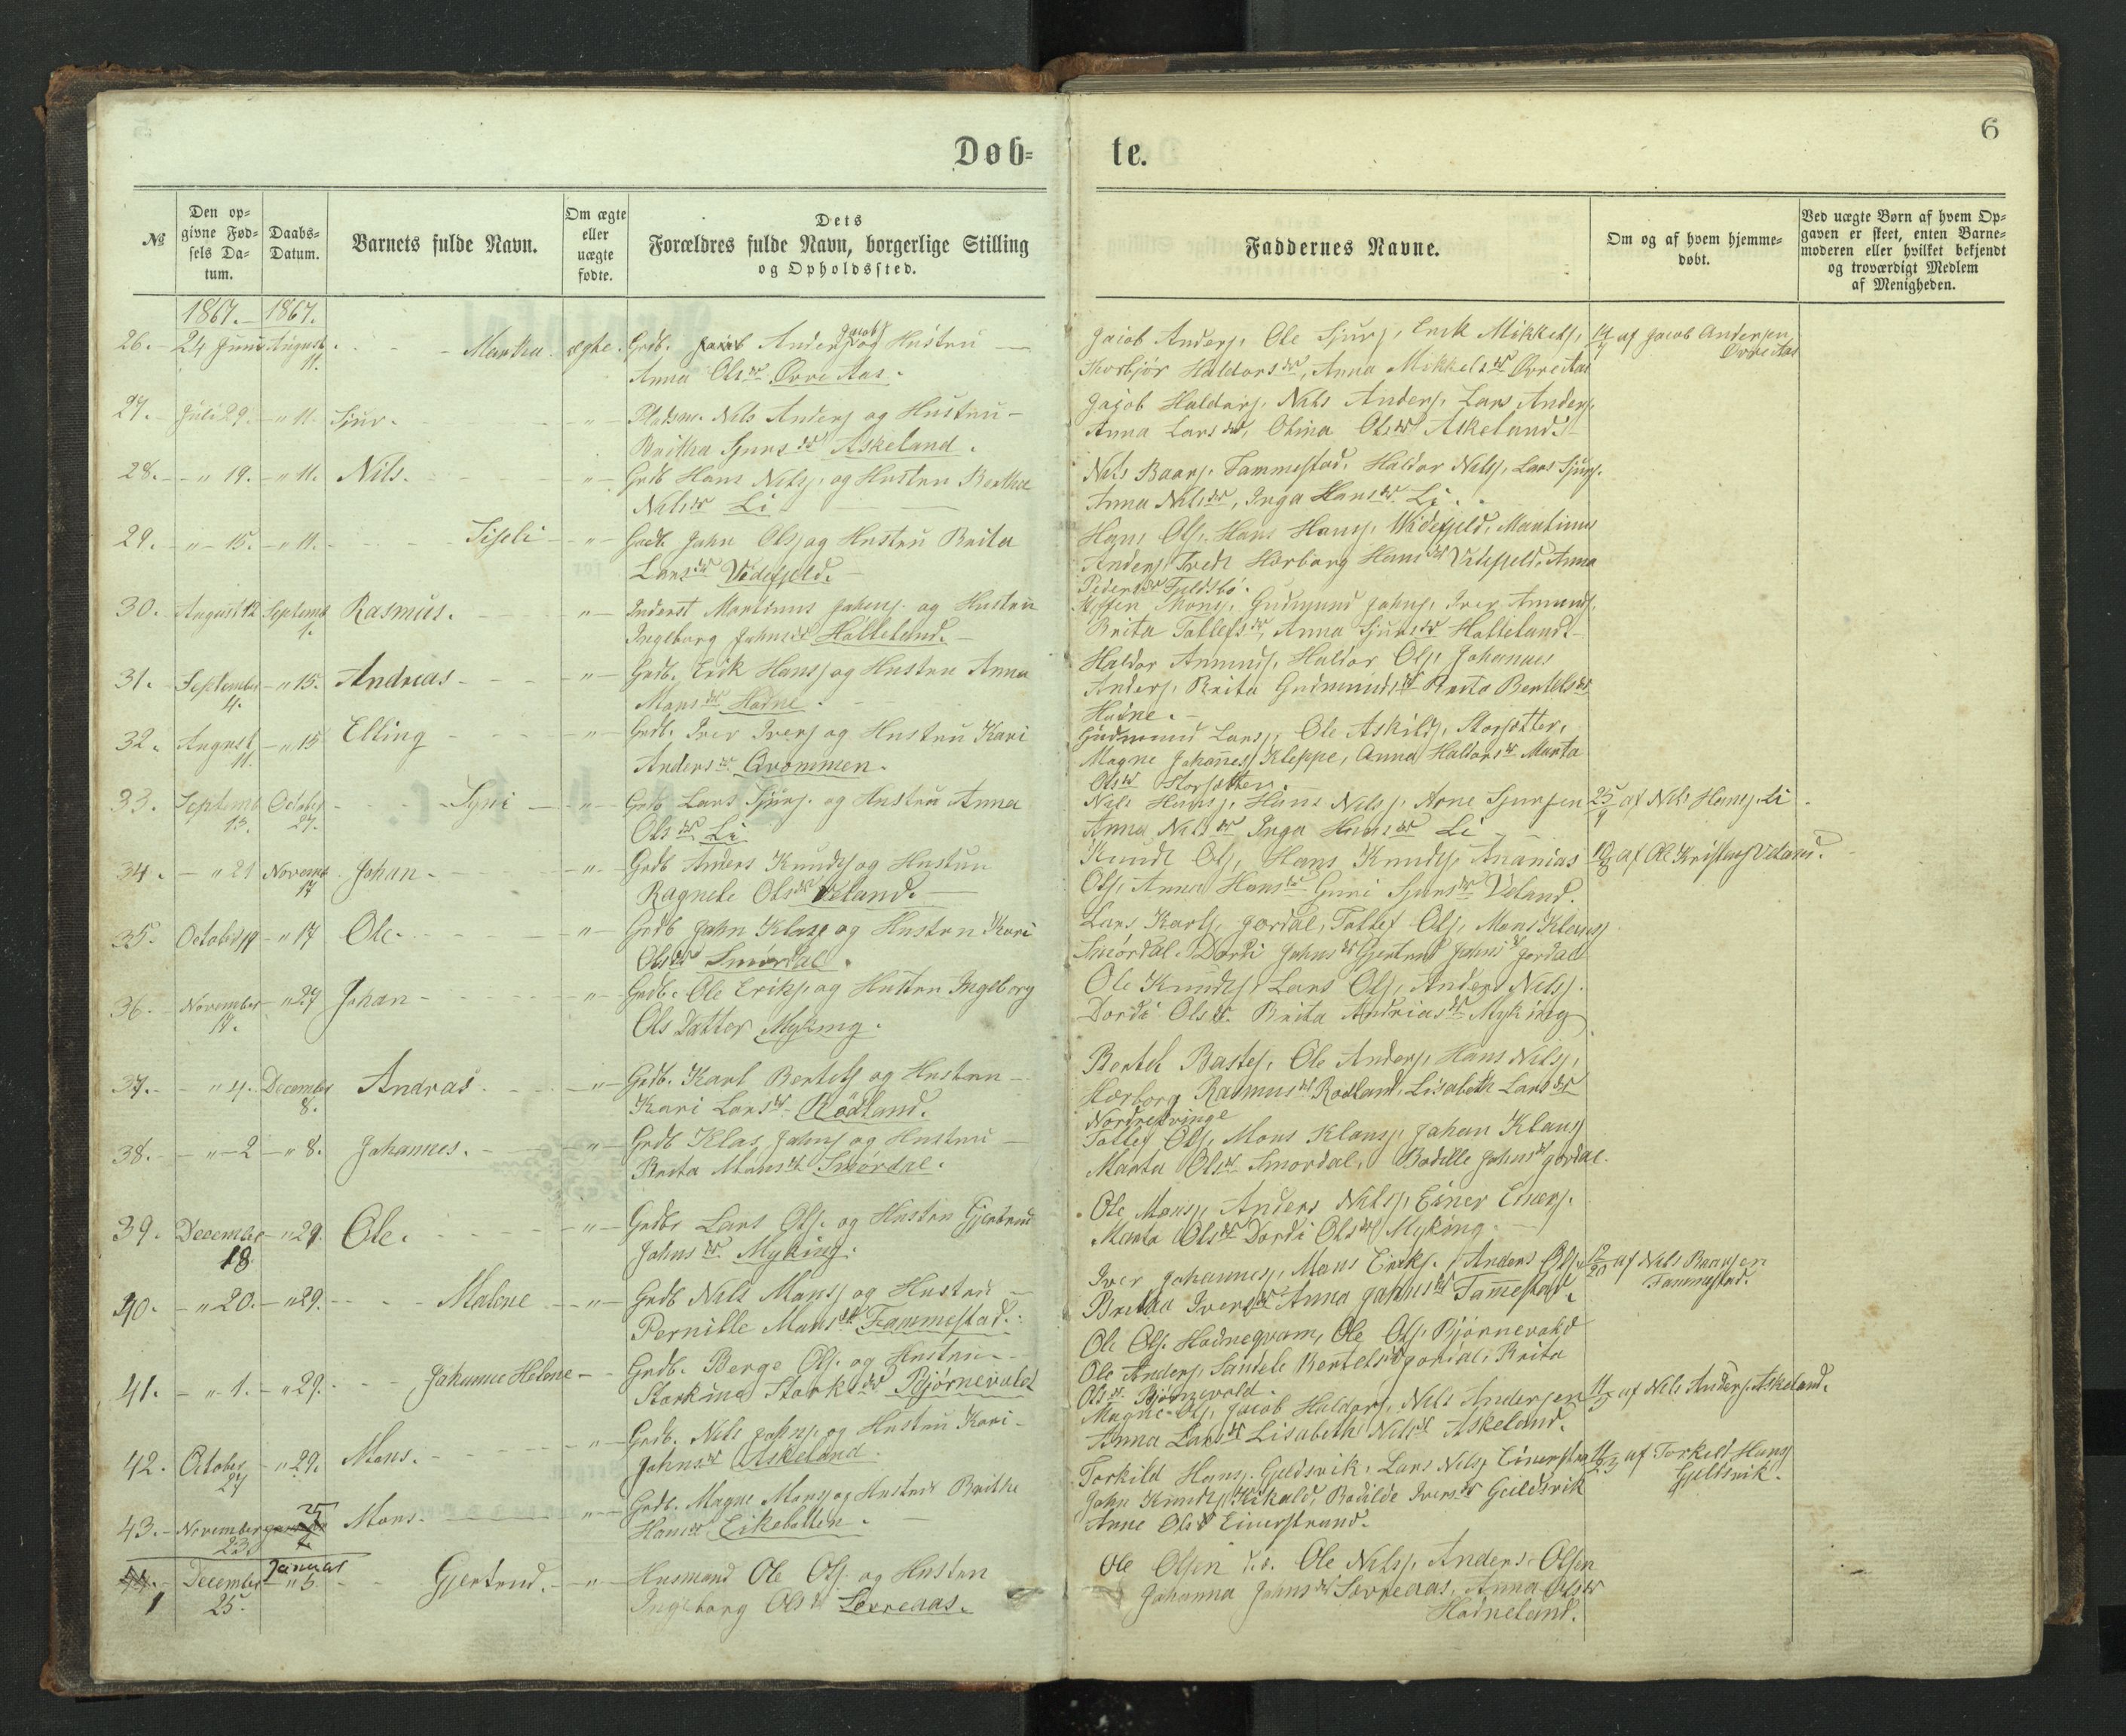 6
Døb-
te.
№
Den op-
givne Fød-
sels Da-
tum.
Daabs-
Datum.
Barnets fulde Navn.
Om ægte
eller
uægte
fødte.
Dets
Forældres fulde Navn, borgerlige Stilling
og Opholdssted.
Faddernes Navne.
Om og af hvem hjemme-
døbt.
Ved uægte Børn af hvem Op-
gaven er skeet, enten Barne-
moderen eller hvilket bekjendt
og troværdigt Medlem
af Menigheden.
1867. 1867.
26. 24 Juni August 11. Martha ægte. Grdb. Andersj og Hustru
Anna Olsdr Øvre Aas.
Jacob Andersj. Ole Sjursj. Erik Mikkelsj.
Thorbjør Haldorsdr, Anna Mikkelsdr Øvre Aas
af Jacob Andersen
Øvre Aas
27. Juli 29. " 11. Sjur. " Pladsm. Nils Andersj og Hustru
Britha Sjursdr Askeland.
Jajob Haldorsj. Nils Andersj. Lars Andersj.
Anna Larsdr, Olina Olsdr Askeland
28. " 19. " 11. Nils. " Grdb Hans Nilsj. og Hustru Bertha
Nilsdr Li
Nils Baarsj. Tammestad. Haldor Nilsj. Lars Sjursj.
Anna Nilsdr, Inga Hansdr Li.
29. " 15. " 11. Sisseli " Grdb John Olsj og Hustru Brita
Larsdr Videsjeld.
Hans Olsj. Hans Hansj. Martinus
Andersj Hærborg Hansdr Anna
Pedersdr
30. August 12 Septemb 1. Rasmus. " Inderst Martinus Johnsj. og Hustru
Ingeborg Johnsdr Halleland.
Steffen Gudmund Johnsj. Iver Amundsj.
Brita Tollefsdr, Anna Sjursdr Halleland
31. September 4. " 15. Andreas " Grdb. Erik Hansj og Hustru Anna
Monsdr Hodne.
Haldor Amundsj. Haldor Olsj. Johannes
Andersj. Brita Gudmundsdr Brita Bertelsdr
Hodne.
32. August 11. " 15 Elling " Grdb. Iver Iversj og Hustru Kari
Andersdr Qvammen.
Gudmund Larsj, Ole Askilds, Storsetter,
Magne Johannesj Kleppe, Anna Haldorsdr Marta
Olsdr Storsetter.
33. Septemb 13. October 27. Syni " Grdb Lars Sjursj. og Hustru Anna
Olsdr Li
Nils Hansj, Hans Nilsj, Arne Sjursen
Anna Nilsdr Inga Hansdr Li
25/9 af Nils Hansj. Li
34. " 21 Novemb 17 Johan. " Grdb Anders Knudsj og Hustru
Ragnele Olsdr Veland.
Knudt Olsj. Hans Knudsj, Ananias
Olsj. Anna Hansdr Guri Sjursdr Veland.
af Ole Kristensj Veland.
35. October 19 " 17 Ole. " Grdb John Klasj og Hustru Kari
Olsdr Smørdal.
Lars Karlsj, Jordal, Tollef Olsj, Mons Klausj
Smørdal. Dordi Johnsdr Gjertrud Johnsdr Jordal
36. November 17. " 27 Johan " Grdb. Ole Eriksj. og Hustru Ingeborg
Ols Datter Myking.
Ole Knudsj Lars Olsj, Anders Nilsj.
Dordi Olsdr. Brita Andriasdr Myking
37. " 4. December 8. Andras " Grdb. Karl Bertelsj og Hustru
Kari Larsdr Rødland.
Bertel Bastesj. Ole Andersj. Hans Nilsj,
Hærborg Rasmusdr Rødland, Lisabeth Larsdr
Nordrekvinge
38. " 2 " 8. Johannes. " Grdb Klas Johnsj og Hustru
Brita Monsdr Smørdal.
Tollef Olsj. Mons Klausj. Johan Klausj
Marta Olsdr Smordal, Bodille Johnsdr Jordal.
39. December 18 " 29. Ole. " Grdbr Lars Olsj. og Hustru Gjertrud
Johnsdr Myking.
Ole Monsj. Anders Nilsj. Einer Einersj.
Marta Olsdr Dordi Olsdr Myking.
40. " 20. " 29. Malene " Grdb Nils Monsj og Hustru
Pernille Monsdr Tammestad.
Iver Johannesj. Mons Eriksj. Anders Olsj.
Britha Iversdr Anna Johnsdr Tammestad.
af Nils Baarsen
Tammestad.
41. " 1. " 29. Johanne Helene Grdb. Berge Olsj. og Hustru
Storkina Storksdr Bjørnevold
Ole Olsj. Hodneqvam, Ole Olsj. Bjørnevold
Ole Andersj. Bertelsdr Jordal. Brita
Olsdr. Bjørnevold.
42. October 27 " 29. Mons. " Grdb. Nils Johnsj. og Hustru Kari
Johnsdr Askeland.
Magne Olsj, Jacob Haldorsj. Nils Andersen
Anna Larsdr Lisabeth Nilsdr Askeland.
af Nils Andersj. Askeland.
43. November 23. 25 Mons. " Grdb. Magne Monsj og Hustru Brithe
Hansdr Eikebotten.
Torkild Hansj. Gjeldsvik, Lars Nilsj Einerstrand
John Knudsj Kikald, Bodilde Iversdr Gjeldsvik
Anne Olsdr Einerstrand.
af Torkild Hansj
Gjeldsvik.
1 December 25. Januar " 5 Gjertrud. " Husmand Ole Olsj. og Hustru
Ingeborg Olsdr Sævreaas.
Ole Olsen Ole Nilsj, Anders Olsen
Johanna Johnsdr Sævreaas, Anna Olsdr
Hodneland.